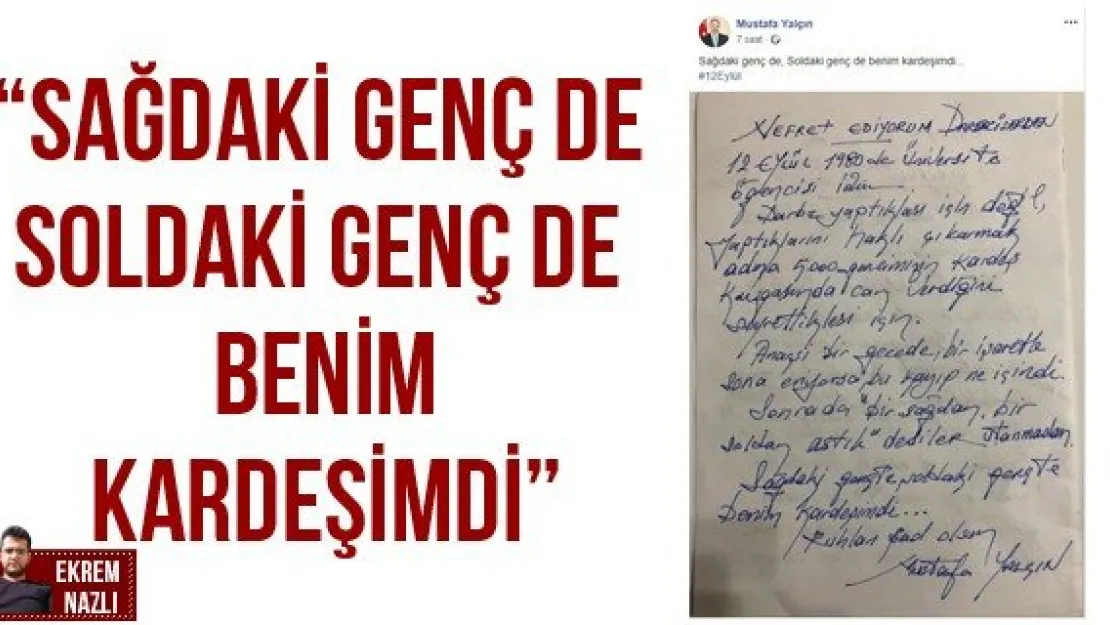 “SAĞDAKİ GENÇ DE
SOLDAKİ GENÇ DE
BENİM
KARDEŞİMDİ”
EKREM
NAZLI
Mustafa Yalçın
7 saat ·
Sağdaki genç de, Soldaki genç de benim kardeşimdi...
#12Eylül
Nefret ediyorum Darbecilerden
12 Eylül 1980 de Üniversite
öğrencisi idim
Darbe yaptıkları için değil,
yaptıklarını haklı çıkarmak
adına 5000 gencimizin kardeş
kavgasında can verdiğini
seyrettikleri için.
Anarşi bir gecede, bir işaretle
sona eriyorsa, bu kayıp ne içindi.
Sonrada "bir sağdan, bir
soldan astık" dediler utanmadan.
Sağdaki gençte, soldaki gençte
benim kardeşimdi...
Ruhları şad olsun
Mustafa Yalçın